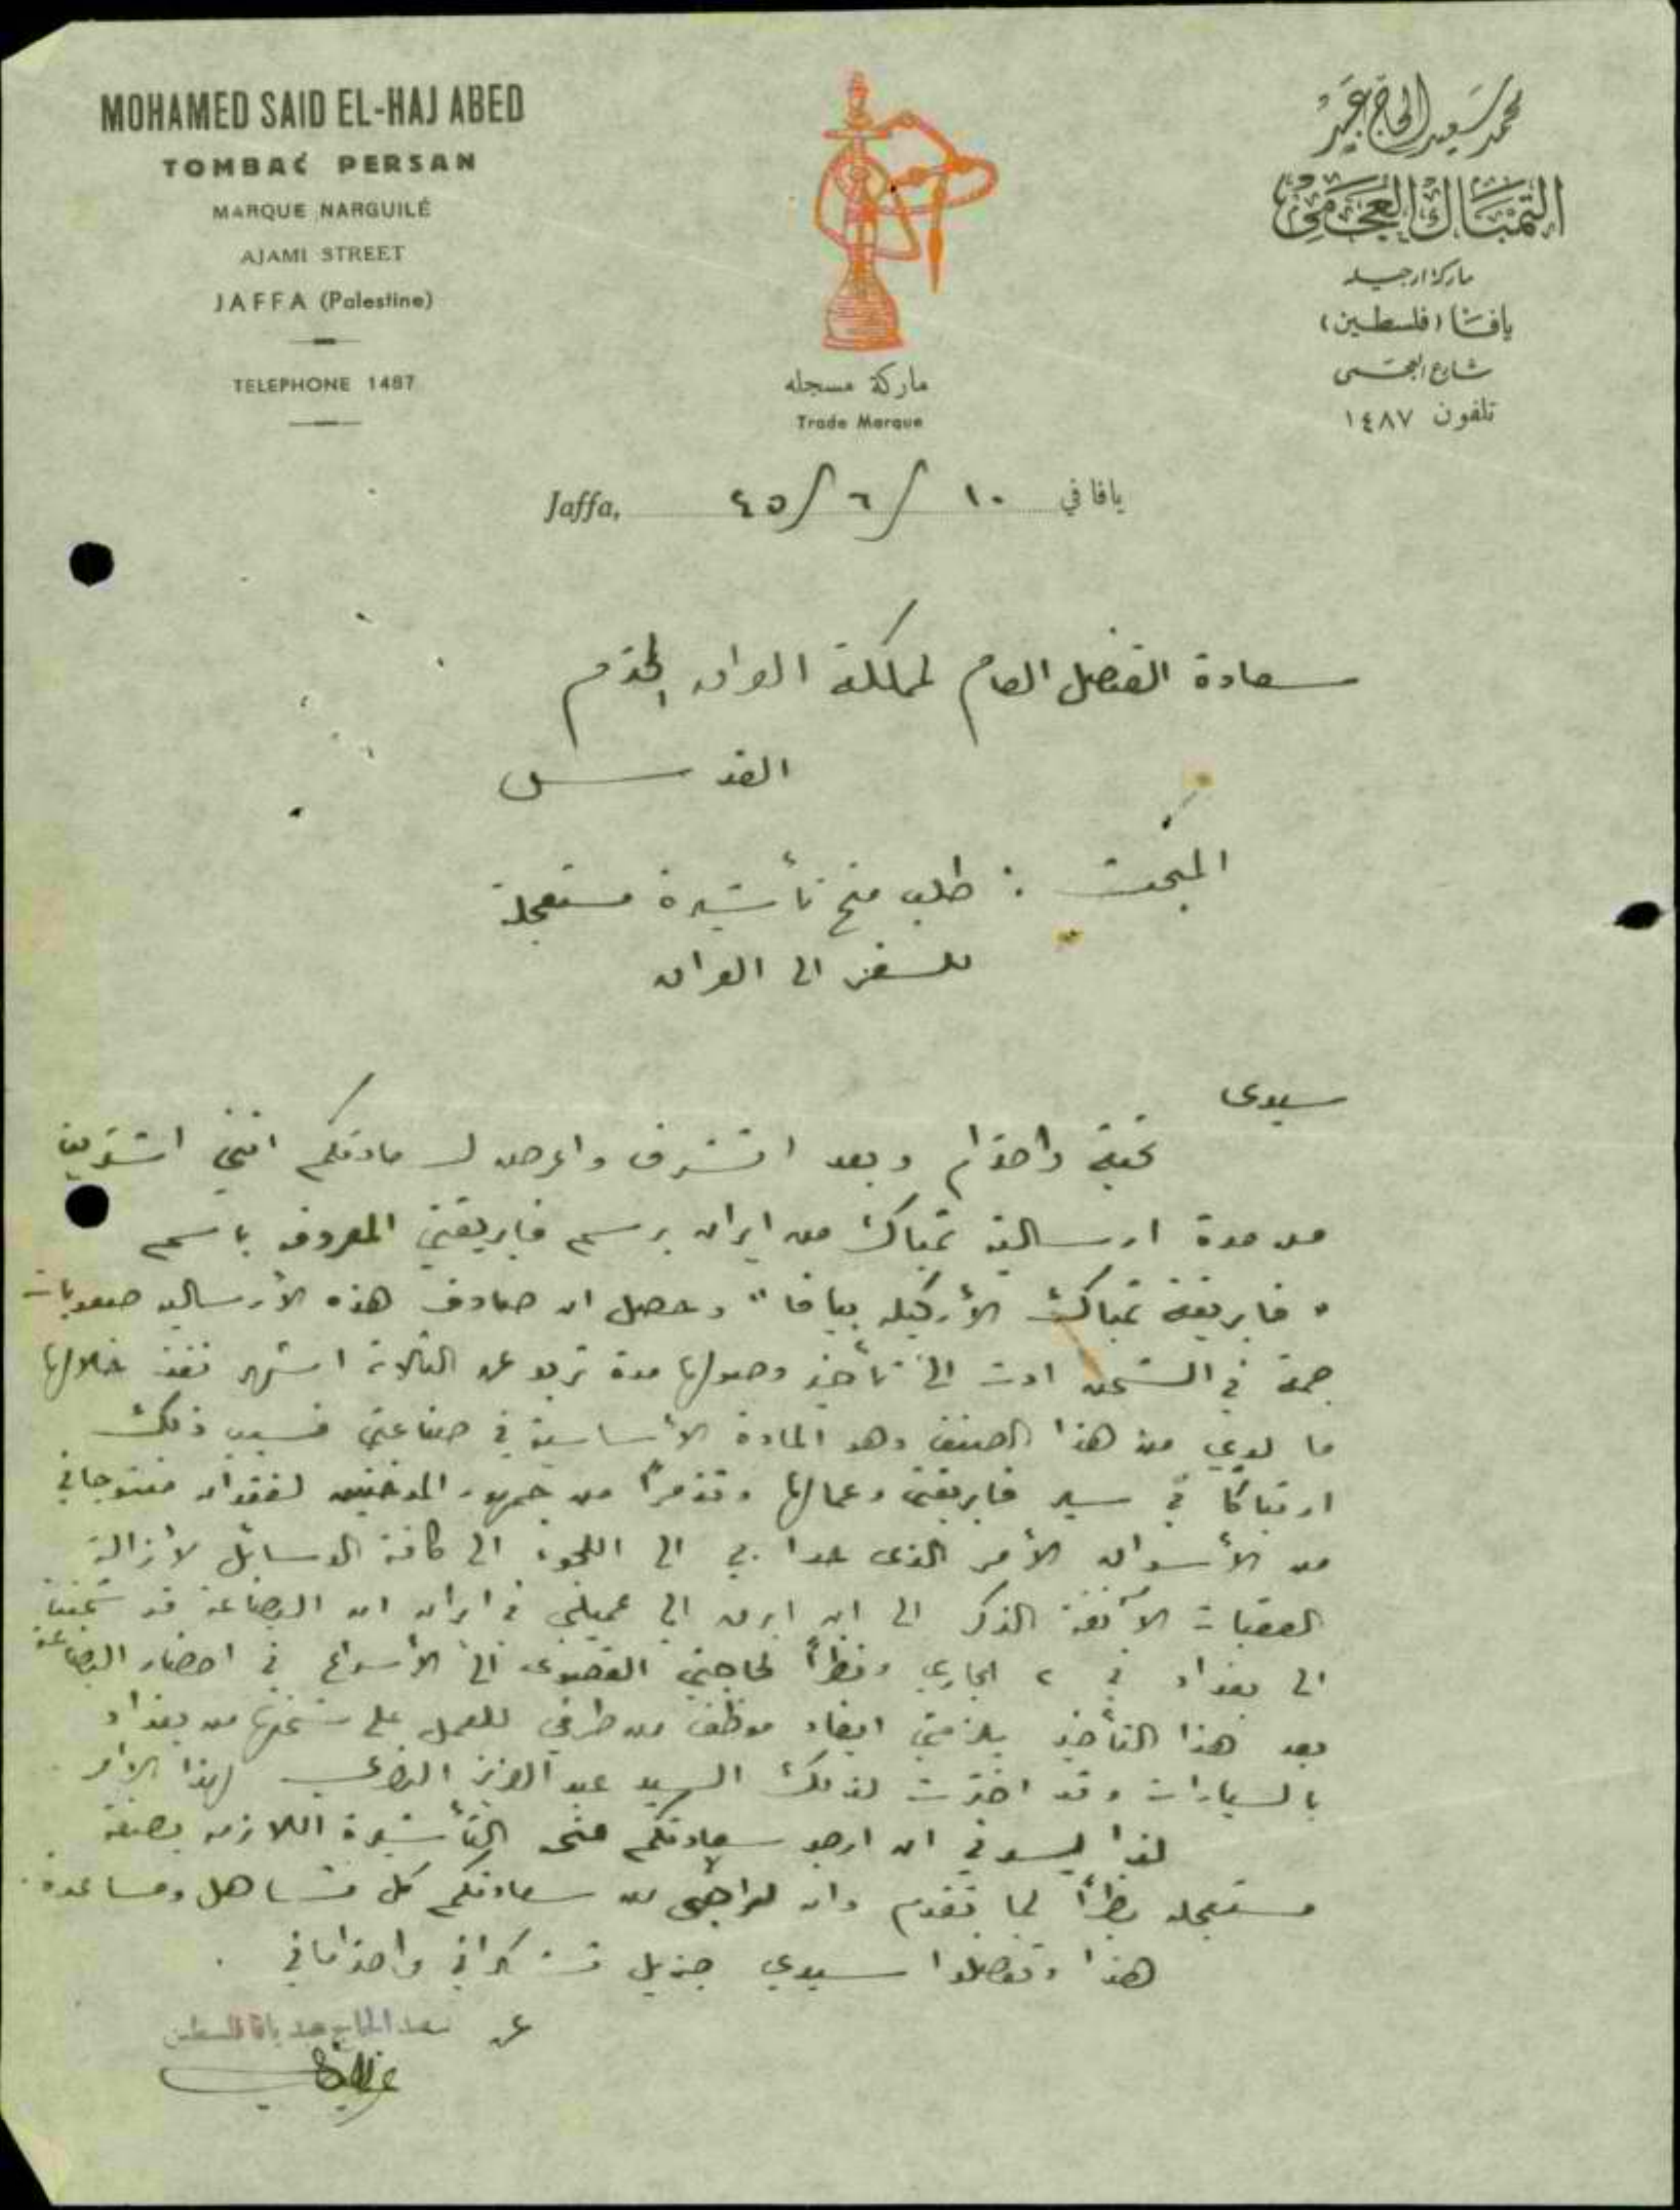 MOHAMED SAID EL-HAJ ABED
TOMBAĆ PERSAN
MARQUE NARGUILÉ
AJAMI STREET
JAFFA (Palestine)
TELEPHONE 1487
ماركة مسجله
Trade Marque
محمد سعيد الحاج عبد
التمباك العجمي
ماركة ارجيله
يافا (فلسطين)
شارع العجمي
تلفون ١٤٨٧
Jaffa, يافا في ١٠/٦/٤٥
سعادة القنصل العام لمملكة العراق المحترم
القدس
المبحث : طلب منح تأشيرة مستعجلة
للسفر الى العراق
سيدي
تحية واحترام وبعد اتشرف واعرض لسعادتكم انني اشتريت
من مدة ارسالية تمباك من ايران برسم فابريقتي المعروف باسم
" فابريقة تمباك الأركيله بيافا " وحصل ان صادف هذه الأرسالية صعوبات
جمة في الشحن ادت الى تأخير وصولها مدة تربو عن الثلاثة اشهر نفذ خلالها
ما لدي من هذا الصنف وهو المادة الأساسية في صناعتي فسبب ذلك
ارتباكا في سير فابريقتي وعمالها وتذمراً من جمهور المدخنين لفقدان منتوجاتي
من الأسواق الأمر الذي حدا بي الى اللجوء الى كافة الوسائل لأزالة
العقبات الآنفة الذكر الى ان ابرق الي عميلي في ايران ان البضاعة قد شحنت
الى بغداد في ٢ الجاري ونظراً لحاجتي القصوى الى الأسراع في احضار البضاعة
بعد هذا التأخير يلزمني ايفاد موظف من طرفي للعمل على شحنها من بغداد
بالسيارات وقد اخترت لذلك السيد عبد العزيز لهذا الأمر
لذا يسرني ان ارجو سعادتكم منحه التأشيرة اللازمة بصفة
مستعجله نظراً لما تقدم وان من سعادتكم كل تساهل ومساعدة.
هذا وتفضلوا سيدي جزيل تشكراتي واحتراماتي .
عن سعيد الحاج عبد يافا فلسطين